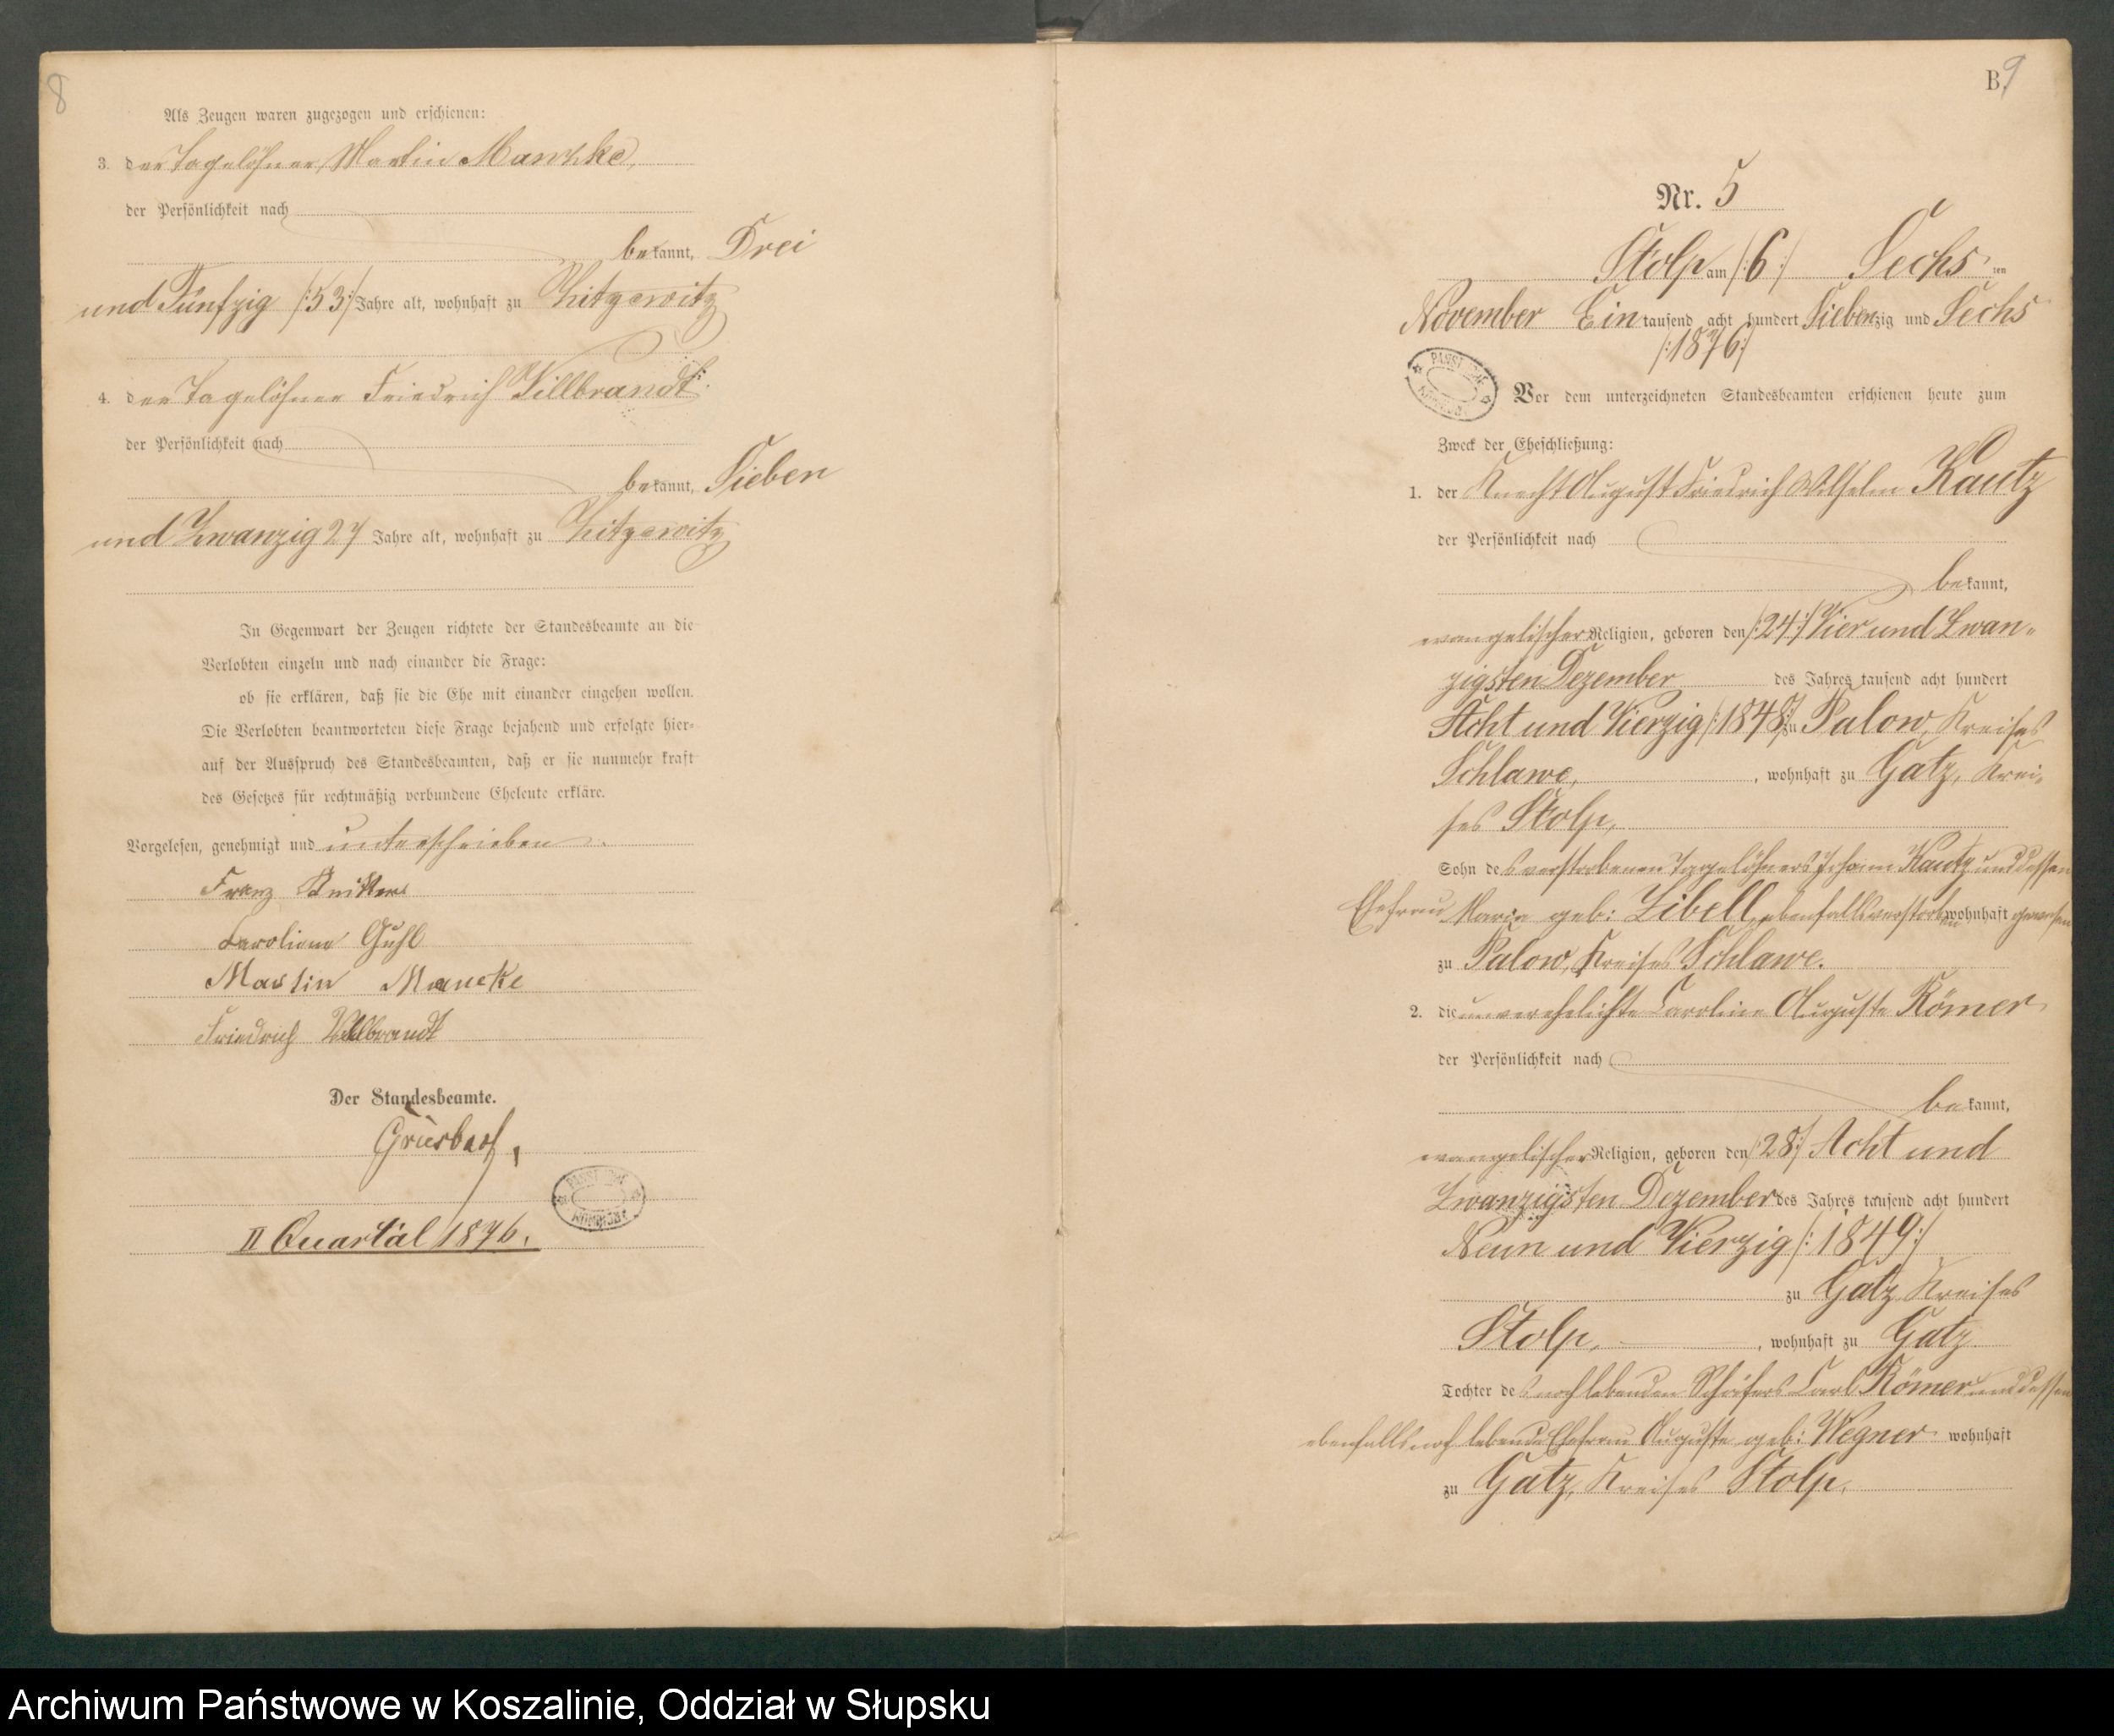 8
Als Zeugen waren zugezogen und erschienen:
3. der Tagelöhner Martin Manzke,
der Persönlichkeit nach
bekannt, Drei
und Fünfzig /:53:/ Jahre alt, wohnhaft zu Zitzewitz
4. der Tagelöhner Friedrich Villbrandt
der Persönlichkeit nach
bekannt, Sieben
und Zwanzig 27 Jahre alt, wohnhaft zu Zitzewitz
In Gegenwart der Zeugen richtete der Standesbeamte an die
Verlobten einzeln und nach einander die Frage:
ob sie erklären, daß sie die Ehe mit einander eingehen wollen.
Die Verlobten beantworteten diese Frage bejahend und erfolgte hier-
auf der Ausspruch des Standesbeamten, daß er sie nunmehr kraft
des Gesetzes für rechtmäßig verbundene Eheleute erkläre.
Vorgelesen, genehmigt und unterschrieben.
Franz
Caroline Guhl
Martin Mancke
Friedrich Villbrandt
Der Standesbeamte.
Griesbach,
II Quartal 1876.
B. 9
Nr. 5
Stolp am /:6:/ Sechs ten
November Ein tausend acht hundert Siebenzig und Sechs
/:1876:/
Vor dem unterzeichneten Standesbeamten erschienen heute zum
Zweck der Eheschließung:
1. der Knecht August Friedrich Wilhelm Kautz
der Persönlichkeit nach
bekannt,
evangelischer Religion, geboren den /:24:/ Vier und Zwan-
zigsten Dezember des Jahres tausend acht hundert
Acht und Vierzig /:1848:/ zu Palow, Kreises
Schlawe, , wohnhaft zu Gatz, Krei-
ses Stolp,
Sohn des verstorbenen Tagelöhners Johann Kautz und dessen
Ehefrau Marie geb: Libell, ebenfalls verstorben wohnhaft gewesen
zu Palow, Kreises Schlawe.
2. die unverehelichte Caroline Auguste Römer
der Persönlichkeit nach
bekannt,
evangelischer Religion, geboren den /:28:/ Acht und
Zwanzigsten Dezember des Jahres tausend acht hundert
Neun und Vierzig /:1849:/
zu Gatz Kreises
Stolp, , wohnhaft zu Gatz
Tochter des noch lebenden Schäfers Carl Römer und dessen
ebenfalls noch lebende Ehefrau Auguste geb: Wegner wohnhaft
zu Gatz, Kreises Stolp.
Archiwum Państwowe w Koszalinie, Oddział w Słupsku